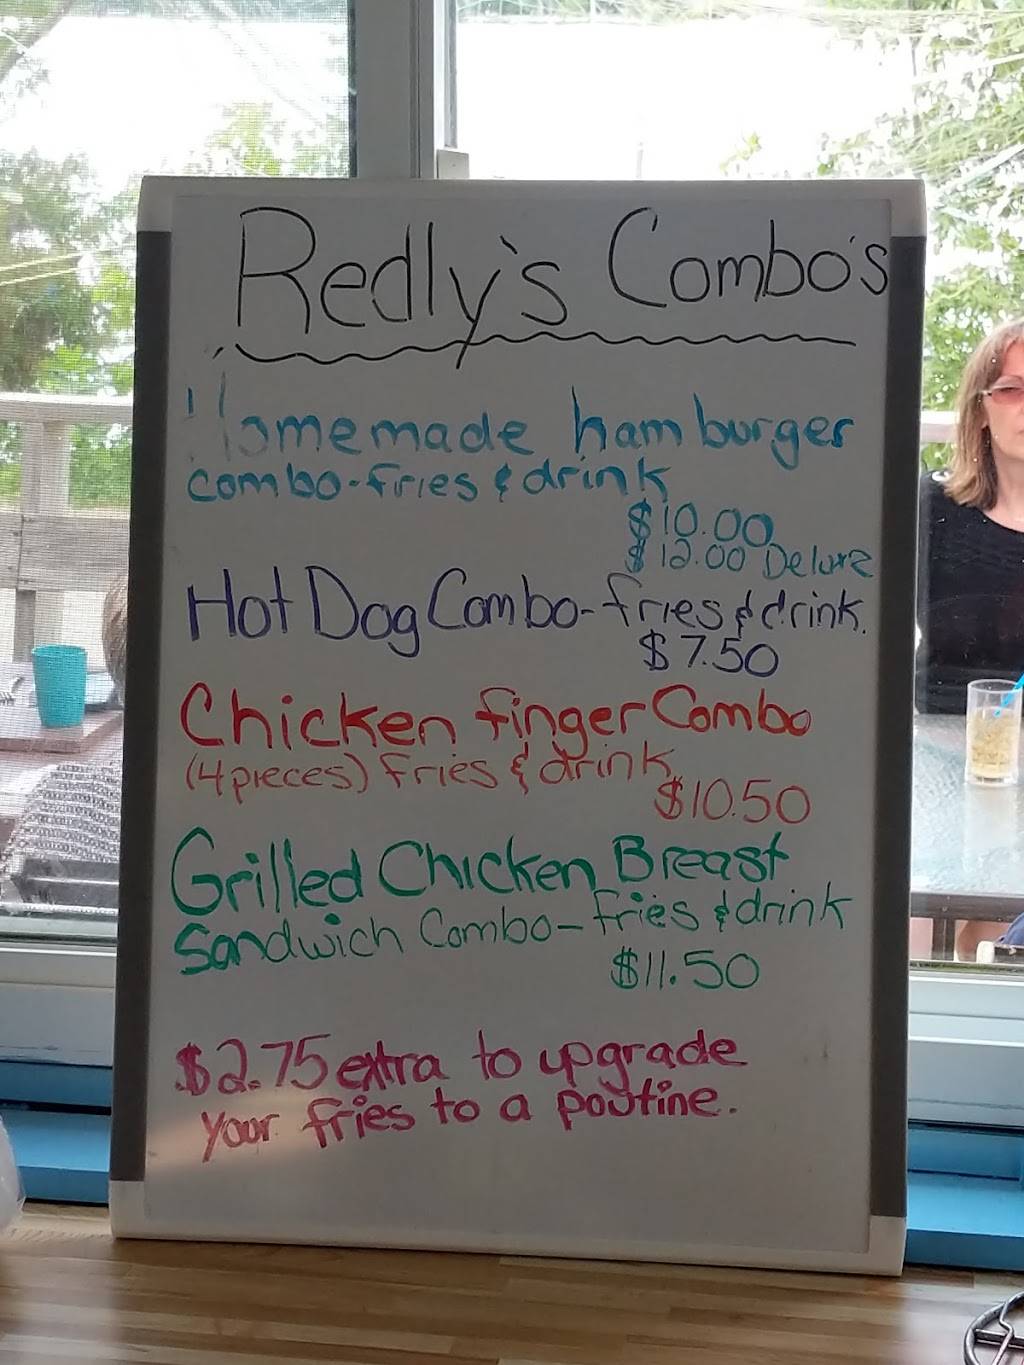 Redly's Combo's
Homemade hamburger
combo-fries & drink
$10.00
$12.00 Deluxe
Hot Dog Combo-fries & drink.
$7.50
Chicken finger Combo
(4 pieces) fries & drink
$10.50
Grilled Chicken Breast
Sandwich Combo-fries & drink
$11.50
$2.75 extra to upgrade
your fries to a poutine.